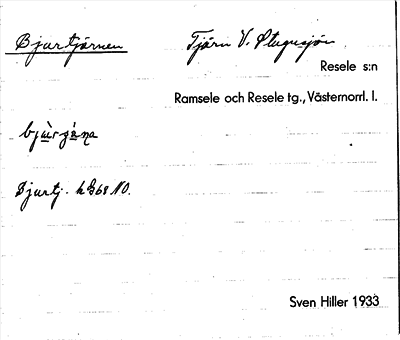 Bjurtjärnen Tjärn V. Stugusjön
Resele s:n
Ramsele och Resele tg., Västernorrl. l.
Bjurtj. k 868 NO.
Sven Hiller 1933